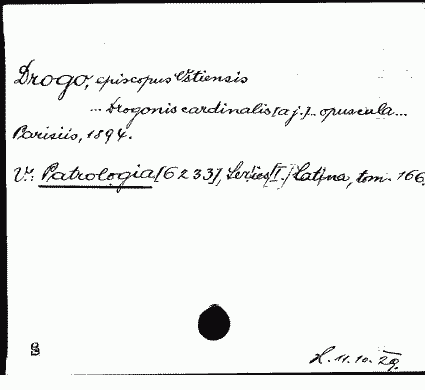 Drogo, episcopus Ostiensis
... Drogonis cardinalis [a j.] .. opuscula ...
Parisiis, 1894.
V: Patrologia [6233], Series [I.] latina, tom. 166
H. 11.10.29.